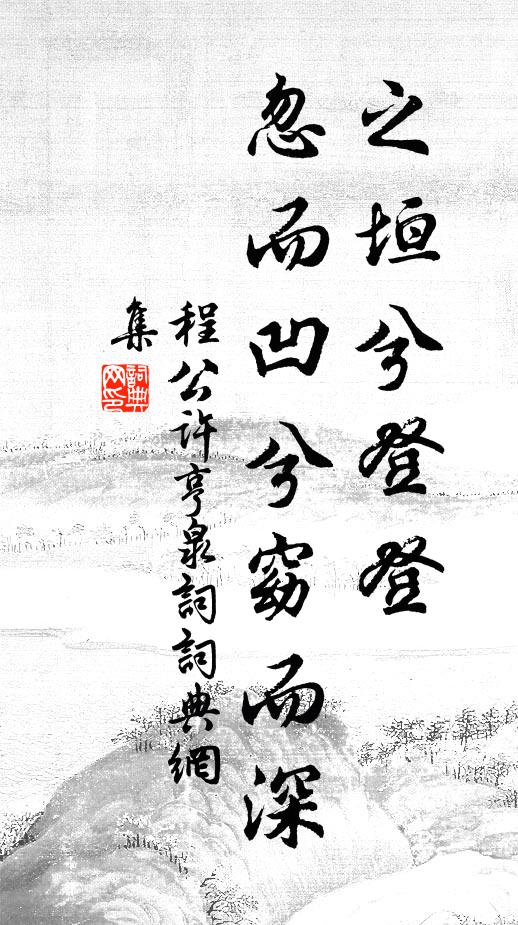 之垣兮登登
忽而凹兮窈而深
程公许亨泉詞詞典網
集
詞典網印